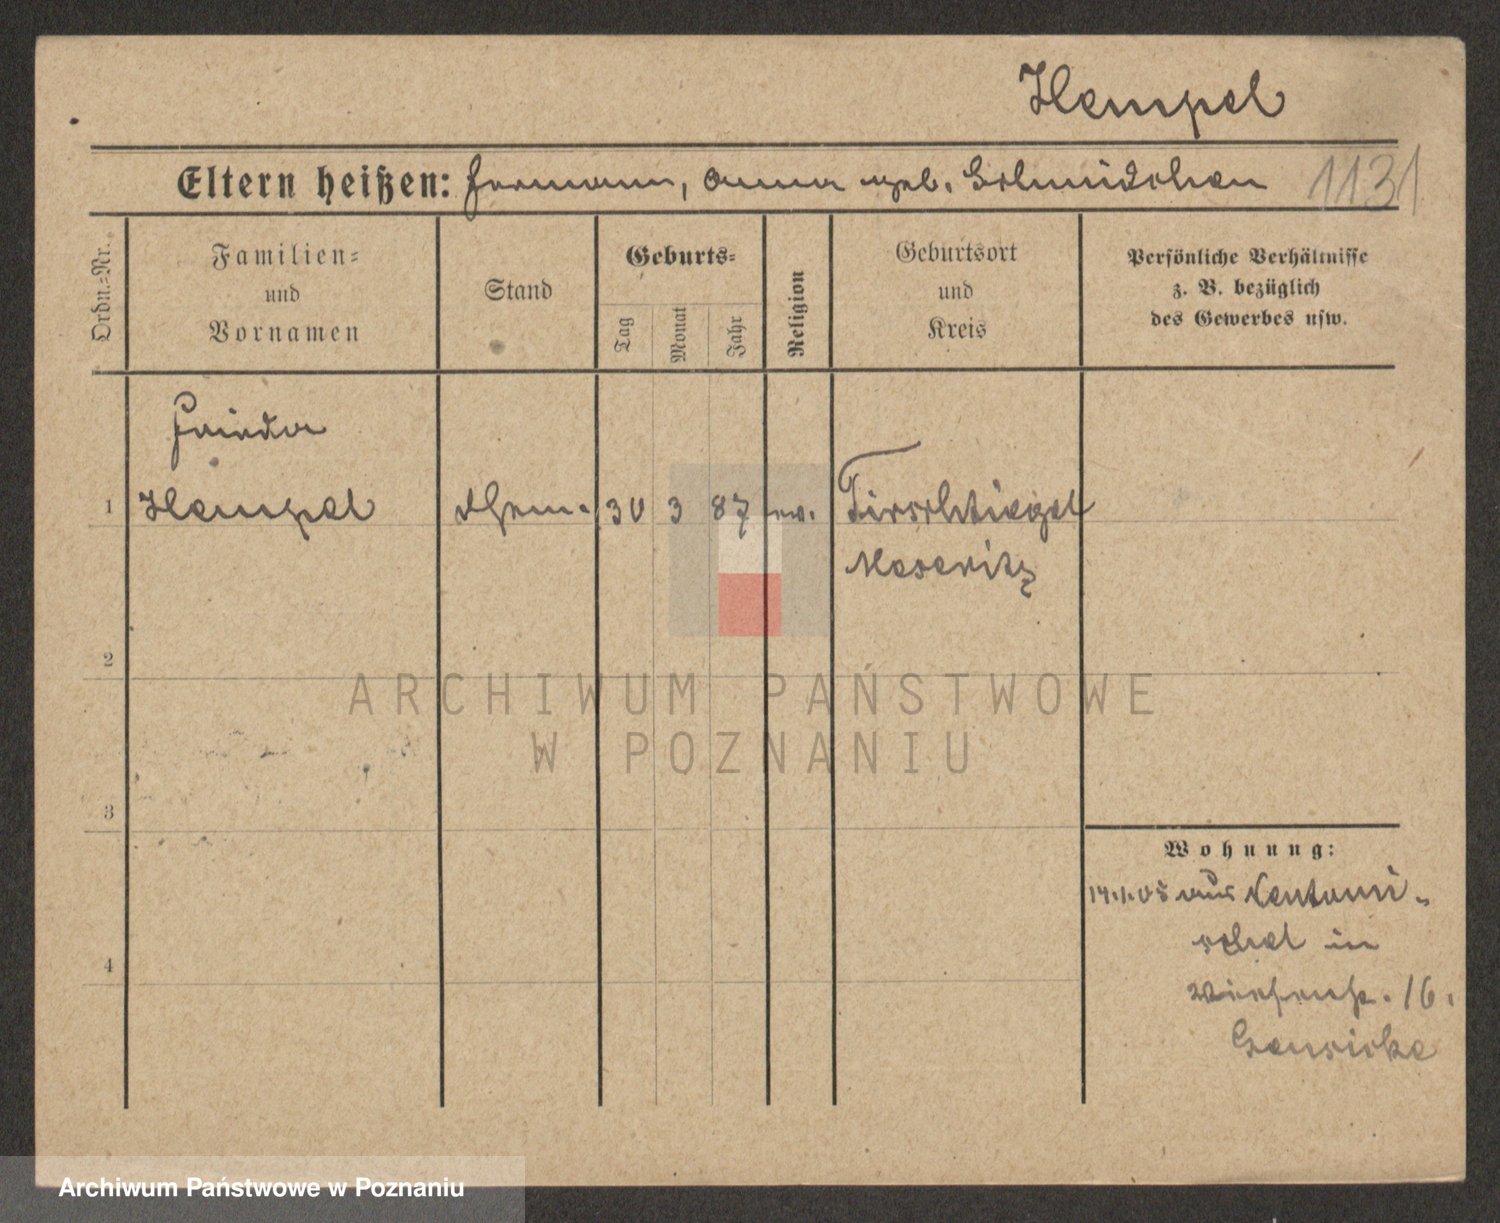 Hempel
Eltern heißen: Hermann, Anna geb. Schmidchen
1131
Ordn.-Nr.
Familien-
und
Vornamen
Stand
Geburts-
Tag
Monat
Jahr
Religion
Geburtsort
und
Kreis
Persönliche Verhältnisse
z. B. bezüglich
des Gewerbes usw.
Frieda
1 Hempel 30 3 87 ev. Tirschtiegel
Meseritz
2
3
4
ARCHIWUM PAŃSTWOWE
W POZNANIU
Wohnung:
14.1.05 aus Neutomi-
schel in
16.
Archiwum Państwowe w Poznaniu